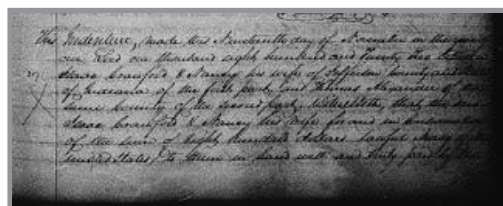 This Indenture, made this Nineteenth day of November in the year
our Lord one thousand eight hundred and Twenty Two between
Isaac Cranford & Nancy his wife of Jefferson County and State
of Indiana of the first part, and Thomas Alexander of the
same County of the Second part, Witnesseth, that the said
Isaac Cranford & Nancy his wife for and in consideration
of the sum of Eight hundred dollars lawful money
United States, to them in hand well and truly paid by the